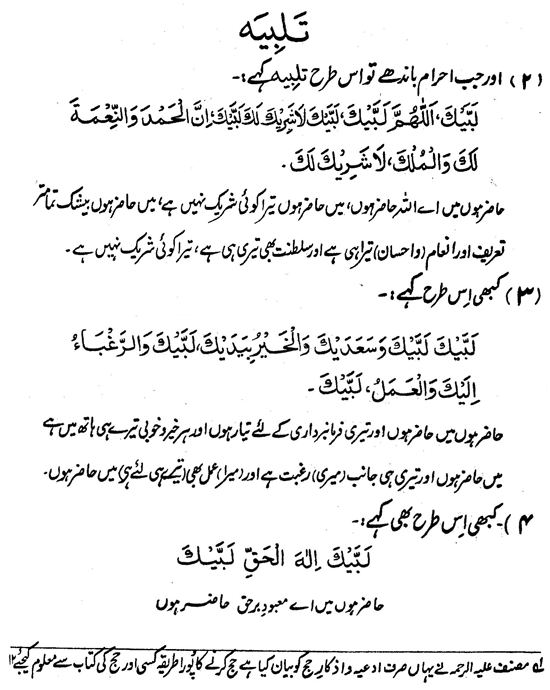 تَلبِیَه
(۲) اور جب احرام باندھے تو اس طرح تلبیہ کہے:-
لَبَّيْكَ، اَللّٰهُمَّ لَبَّيْكَ، لَبَّيْكَ لَا شَرِيْكَ لَكَ لَبَّيْكَ، اِنَّ الْحَمْدَ وَالنِّعْمَةَ
لَكَ وَالْمُلْكَ، لَا شَرِيْكَ لَكَ.
حاضر ہوں میں اے اللہ حاضر ہوں، میں حاضر ہوں تیرا کوئی شریک نہیں ہے، میں حاضر ہوں بیشک تمامتر
تعریف اور انعام (و احسان) تیرا ہی ہے اور سلطنت بھی تیری ہی ہے، تیرا کوئی شریک نہیں ہے۔
(۳) کبھی اِس طرح کہے:-
لَبَّيْكَ لَبَّيْكَ وَسَعَدَيْكَ وَالْخَيْرُ بِيَدَيْكَ، لَبَّيْكَ وَالرَّغْبَاءُ
اِلَيْكَ وَالْعَمَلُ، لَبَّيْكَ۔
حاضر ہوں میں حاضر ہوں اور تیری فرمانبرداری کے لئے تیار ہوں اور ہر خیر و خوبی تیرے ہی ہاتھ میں ہے
میں حاضر ہوں اور تیری ہی جانب (میری) رغبت ہے اور (میرا) عمل بھی (تیرے ہی لئے ہی) میں حاضر ہوں۔
۴)-کبھی اِس طرح بھی کہے:-
لَبَّيْكَ اِلٰهَ الْحَقِّ لَبَّيْكَ
حاضر ہوں میں اے معبودِ برحق حاضر ہوں
لہ مصنف علیہ الرحمہ نے یہاں صرف ادعیہ و اذکارِ حج کو بیان کیا ہے حج کرنے کا پورا طریقہ کسی اور حج کی کتاب سے معلوم کیجئے ۱۲